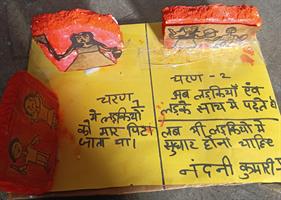 चरण 1
में लड़कियों
को मार पिटा
जाता था।
चरण - 2
अब लड़कियों एवं
लड़के साथ में पढ़ते है
अब भी लड़कियों में
सुधार होना चाहिए
नंदनी कुमारी